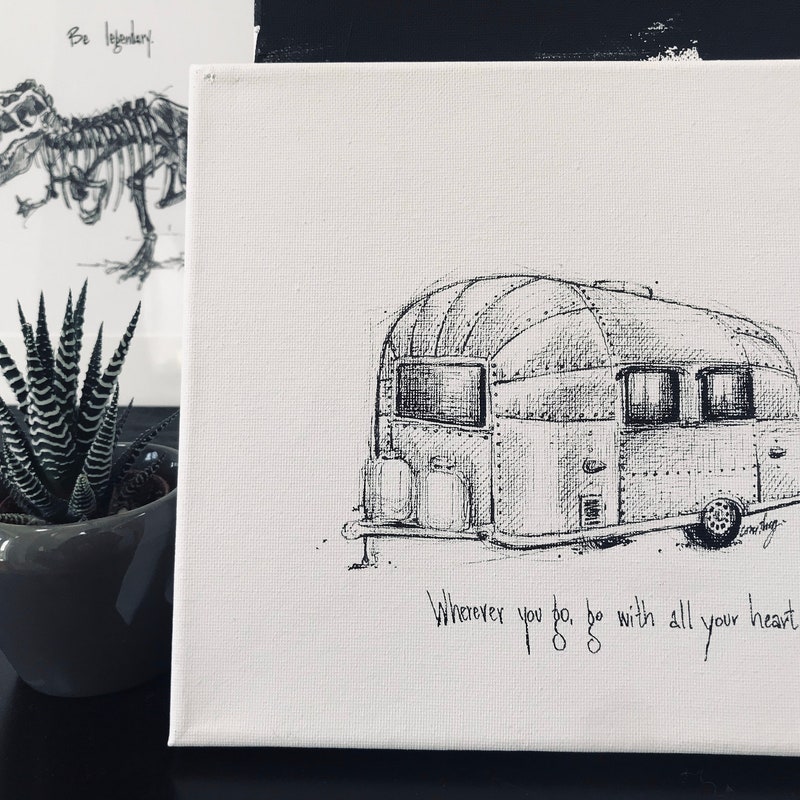 Be legendary.
Wherever you go, go with all your heart